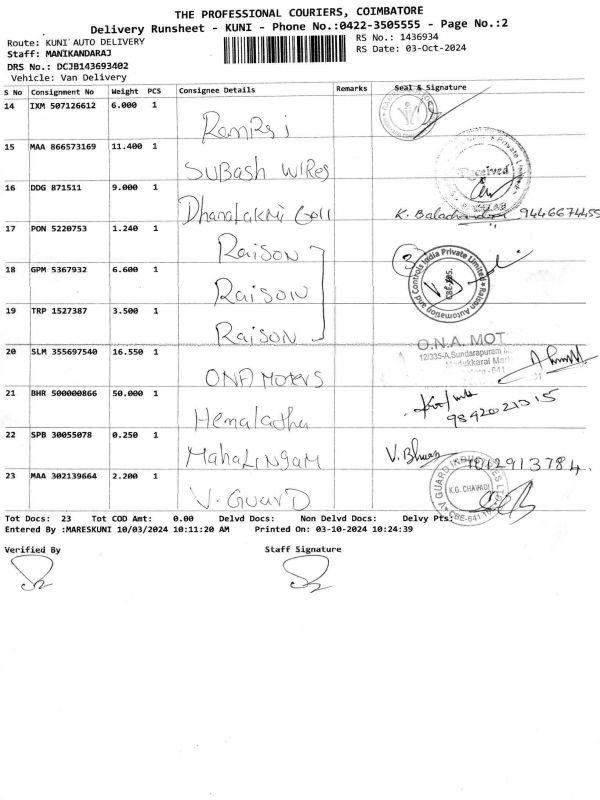 THE PROFESSIONAL COURIERS, COIMBATORE
Delivery Runsheet - KUNI - Phone No.:0422-3505555 - Page No.:2
Route: KUNI AUTO DELIVERY RS No.: 1436934
Staff: MANIKANDARAJ RS Date: 03-Oct-2024
DRS No.: DCJB143693402
Vehicle: Van Delivery
S No Consignment No Weight PCS Consignee Details Remarks Seal & Signature
14 IXM 507126612 6.000 1
Ramraj
15 MAA 866573169 11.400 1
SUBASH WIRES
Received
16 DDG 871511 9.000 1
Dhanalakmi Coil K. Balachandran 9446674455
17 PON 5220753 1.240 1
RAISON 3
18 GPM 5367932 6.600 1
RAISON
Raison Automation and Controls India Private Limited
CBE-105.
19 TRP 1527387 3.500 1
RAISON
20 SLM 355697540 16.550 1 O.N.A. MOT
12/335-A,Sundarapuram
Madukkarai
- 641
ONA MOTERS
21 BHR 500000866 50.000 1
Hemalatha 9842021015
22 SPB 30055078 0.250 1
MAHALINGAM V. Bhuan
23 MAA 302139664 2.200 1
V. GUARD V GUARD INDUSTRIES LTD
K.G. CHAVADI
CBE-641
Tot Docs: 23 Tot COD Amt: 0.00 Delvd Docs: Non Delvd Docs: Delvy Pts:
Entered By :MARESKUNI 10/03/2024 10:11:20 AM Printed On: 03-10-2024 10:24:39
Verified By Staff Signature